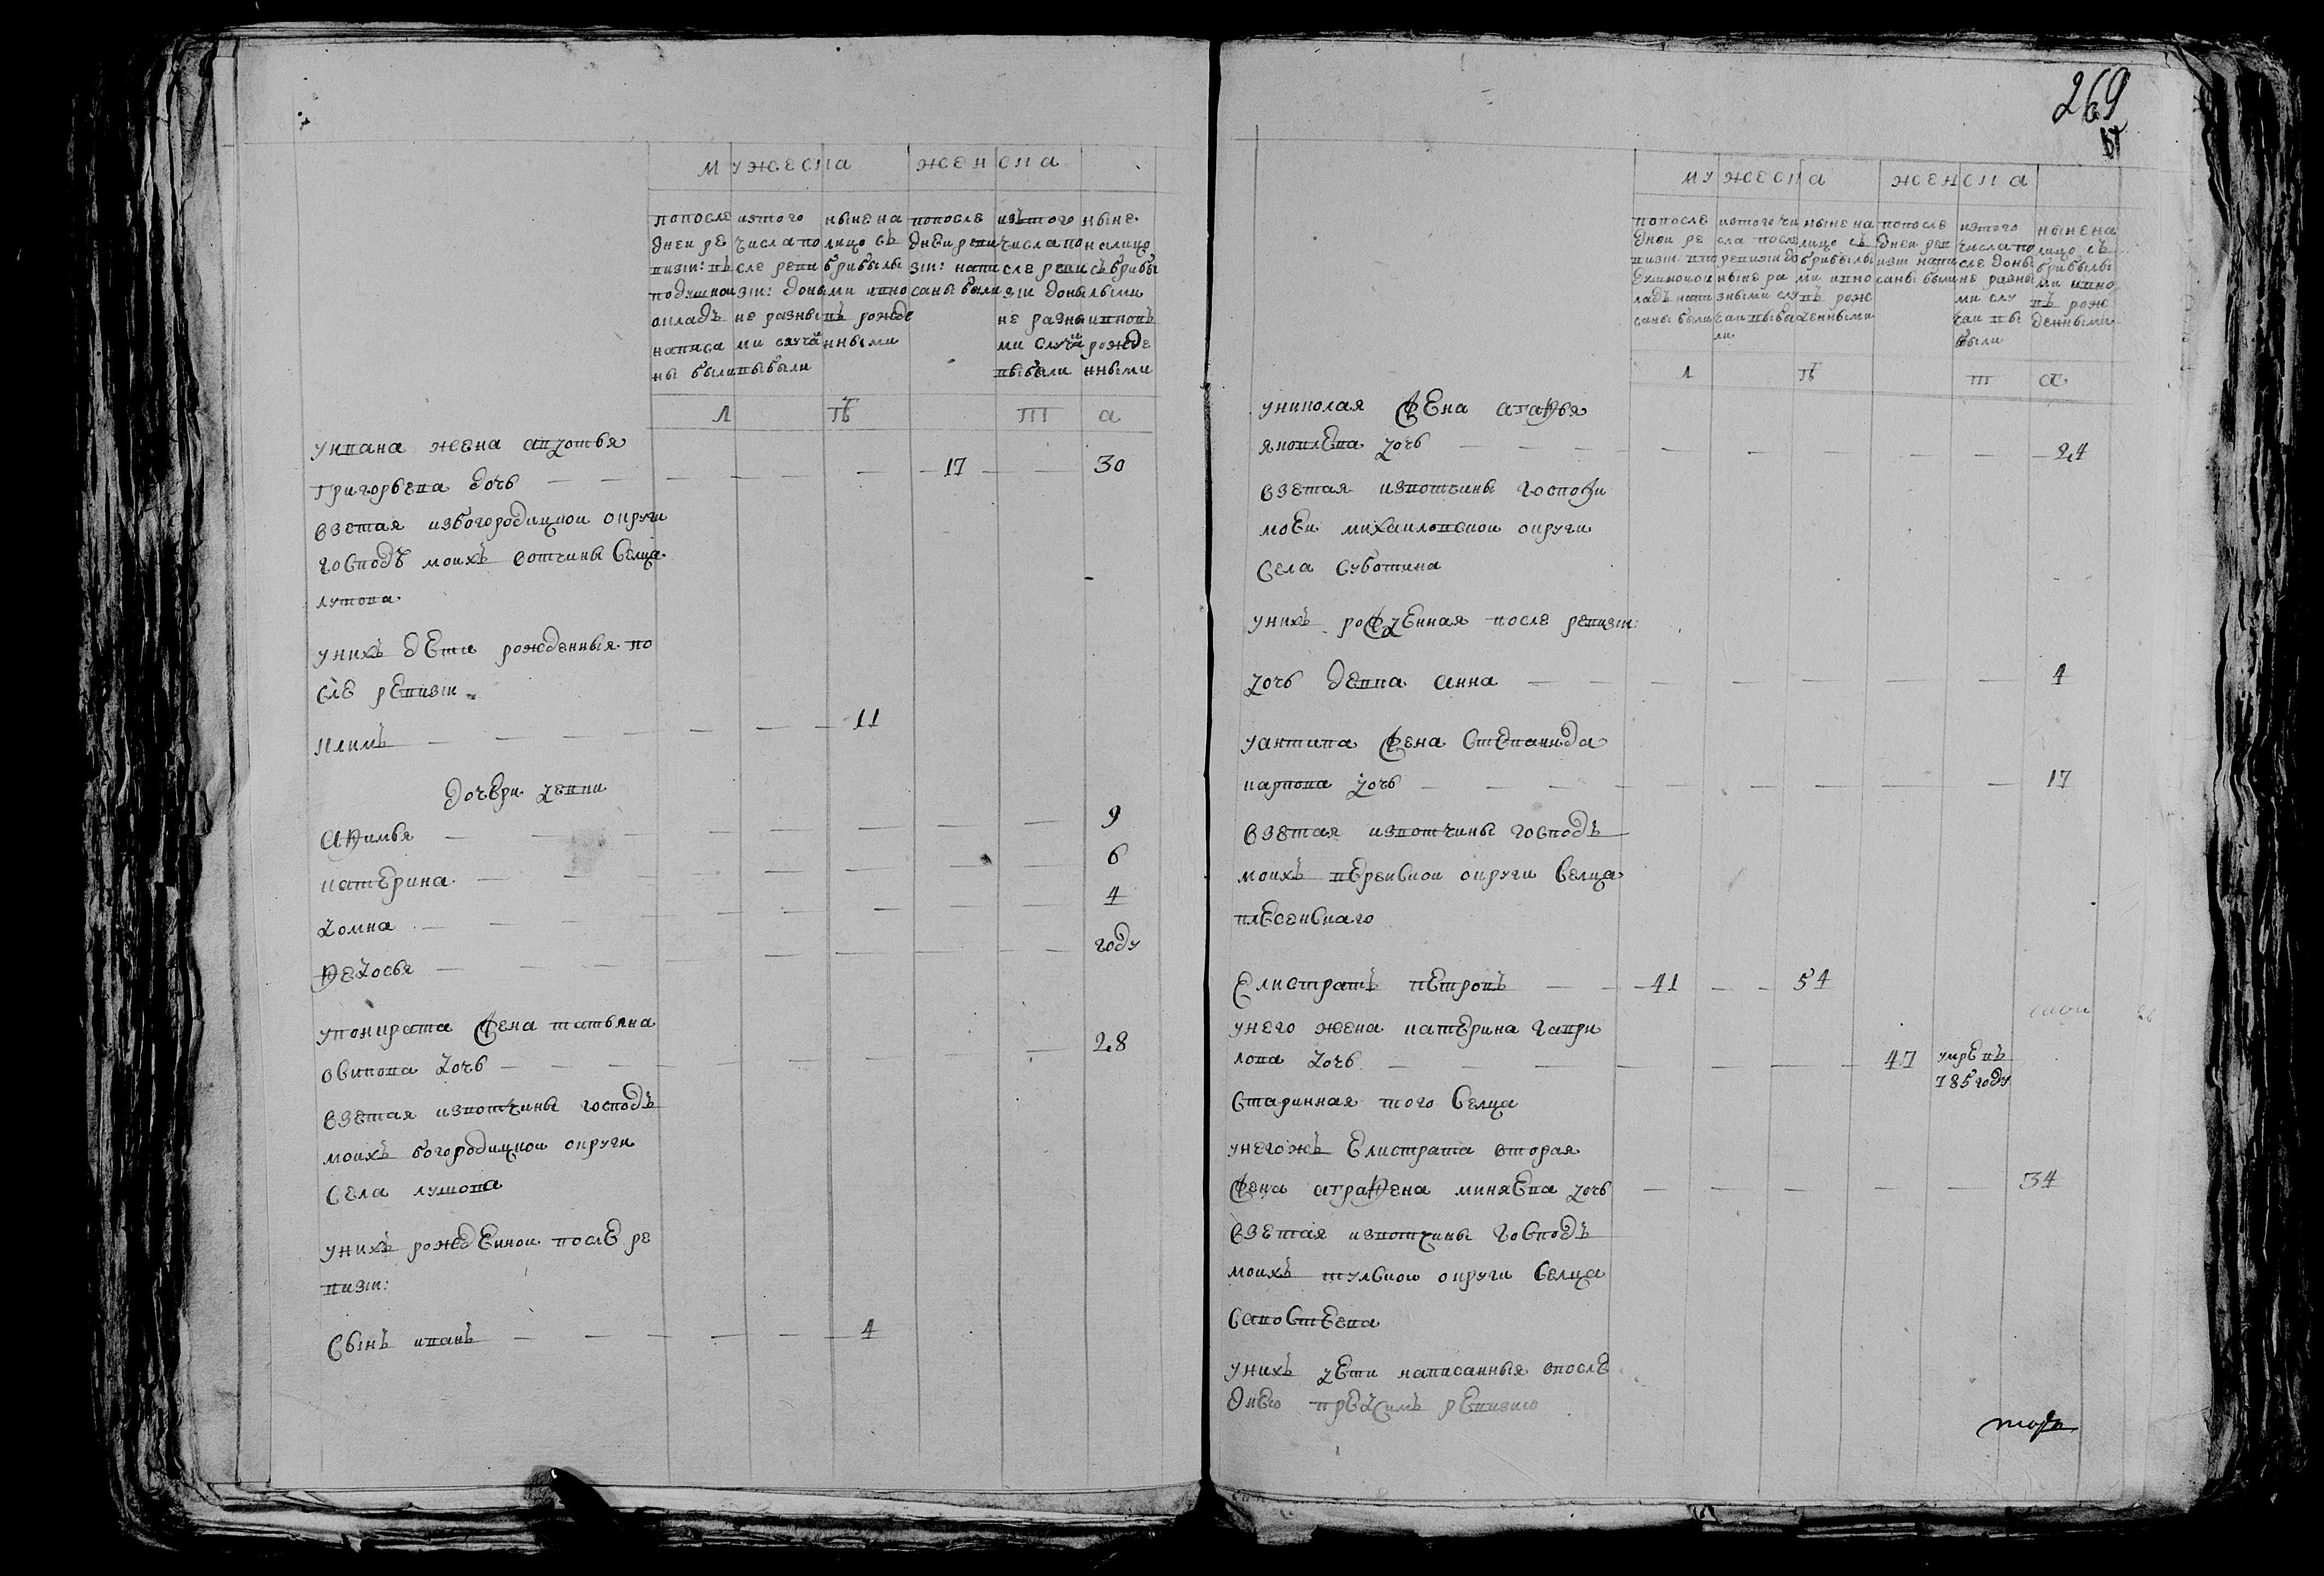 мужеска женска
попосле днеи ре визiи: въ подушнои окладъ написа ны были
изтого числа по сле реви зiи: доны не разны ми случаи выбыли
ныне на лицо съ прибылы ми ивно въ рожде нными
попосле днеи реви зiи: напи саны были
изътого числа по сле реви зiи доны не разны ми случаи выбыли
ныне налицо съ прибы лыми ивновь рожде нными
Л ТЬ Т А
уивана жена авдотья
григорьева дочь 17 30
взетая избогородицкои округи
господъ моихъ вотчины селца
лутова
унихъ дети рожденныя по
сле ревизiи
климъ 11
дочери девки
афимья 9
катерина 6
домна 4
федосья году
упонкрата жена татьяна
осипова дочь 28
взетая извотчины господъ
моихъ богородицкои округи
села лутова
унихъ рожденнои после ре
визiи:
сынъ иванъ 4
269
мужеска женска
попосле днеи ре визiи впо душнои ок ладъ напи саны были
изтого чи сла после ревизiи до ныне ра зными слу чаи выбы ли
ныне на лицо съ прибылы ми ивно въ рож денными
попосле днеи рев изiи напи саны были
изтого числа по сле доны не разны ми слу чаи вы были
ныне на лицо съ прибылы ми ивно въ рож денными
Л ТЬ Т А
униколая жена агафья
яковлева дочь 24
взетая извотчины госпожи
моеи михаиловскои округи
села суботина
унихъ рожденная после ревизiи:
дочь девка анна 4
уантипа жена степанида
карпова дочь 17
взетая извотчины господъ
моихъ веревскои округи селца
плесенскаго
елистратъ петровъ 41 54
унего жена катерина гаври
лова дочь 47 умре въ
785 году
старинная того селца
унегожъ елистрата вторая
жена аграфена минаева дочь 34
взетая извотчины господъ
моихъ тулскои округи селца
сапостева
унихъ дети написанныя впосле
днею предсимъ ревизию